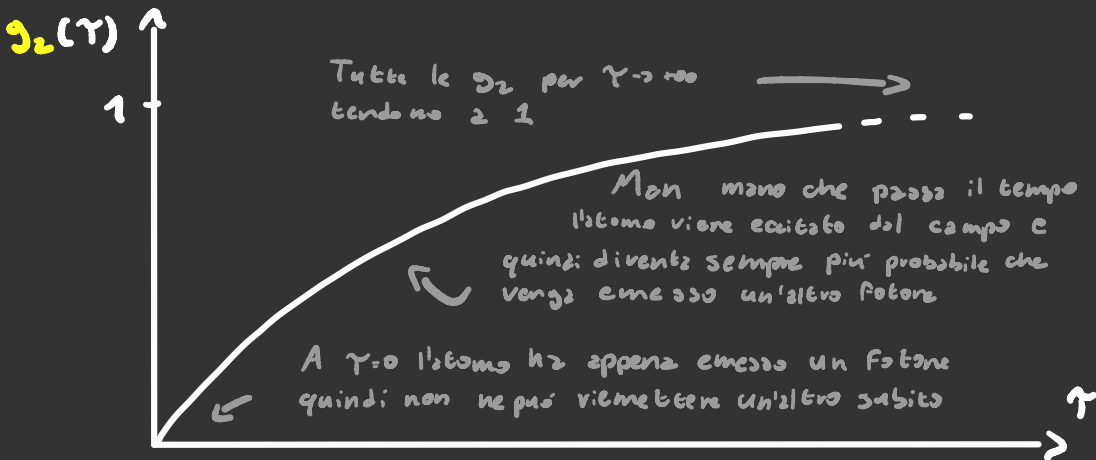 g₂(τ)
1
Tutte le g₂ per τ→+∞
tendono a 1
Man mano che passa il tempo
l'atomo viene eccitato dal campo e
quindi diventa sempre più probabile che
venga emesso un'altro fotone
A τ=0 l'atomo ha appena emesso un fotone
quindi non ne può riemettere un'altro subito
τ